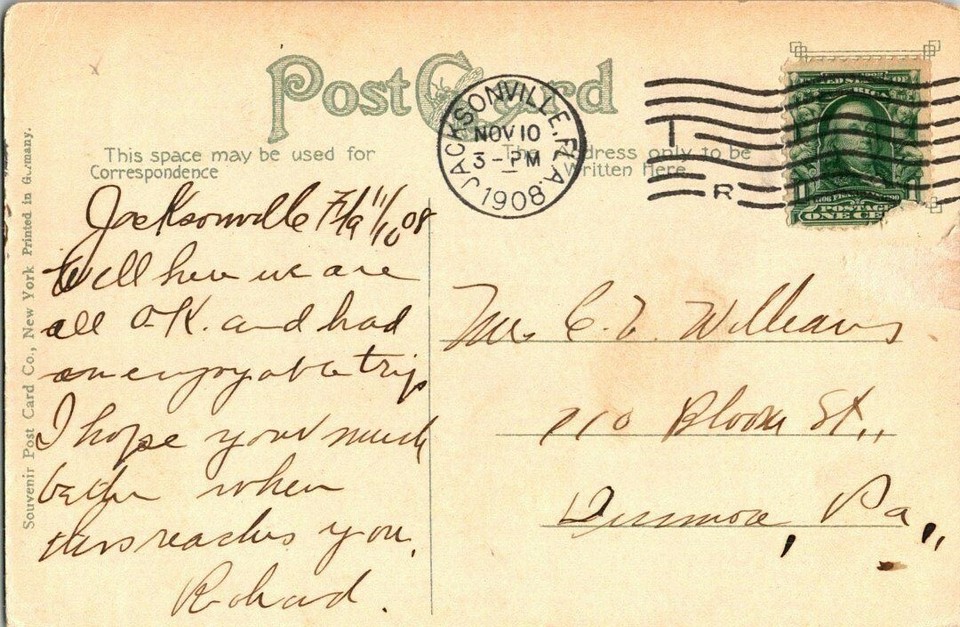 Post Card
This space may be used for
Correspondence
The address only to be
Written Here
JACKSONVILLE, FLA.
NOV 10
3 - PM
1908
R
UNITED STATES OF
AMERICA
POSTAGE
ONE CE
Souvenir Post Card Co., New York Printed in Germany.
Jacksonville Fla 11/10 08
Well here we are
all O.K. and had
an enjoyable trip
I hope your much
better when
this reaches you.
Richard.
Mrs C. V. Williams
710 Bloom St.,
Dunmore, Pa.,